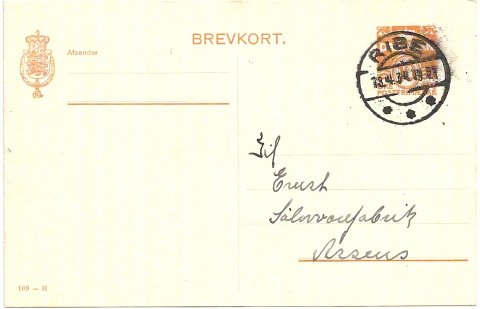 BREVKORT.
Afsender
RIBE
28.4.34. 19-21
Til
Ernst
Sølvvarefabrik
Assens
109 - H